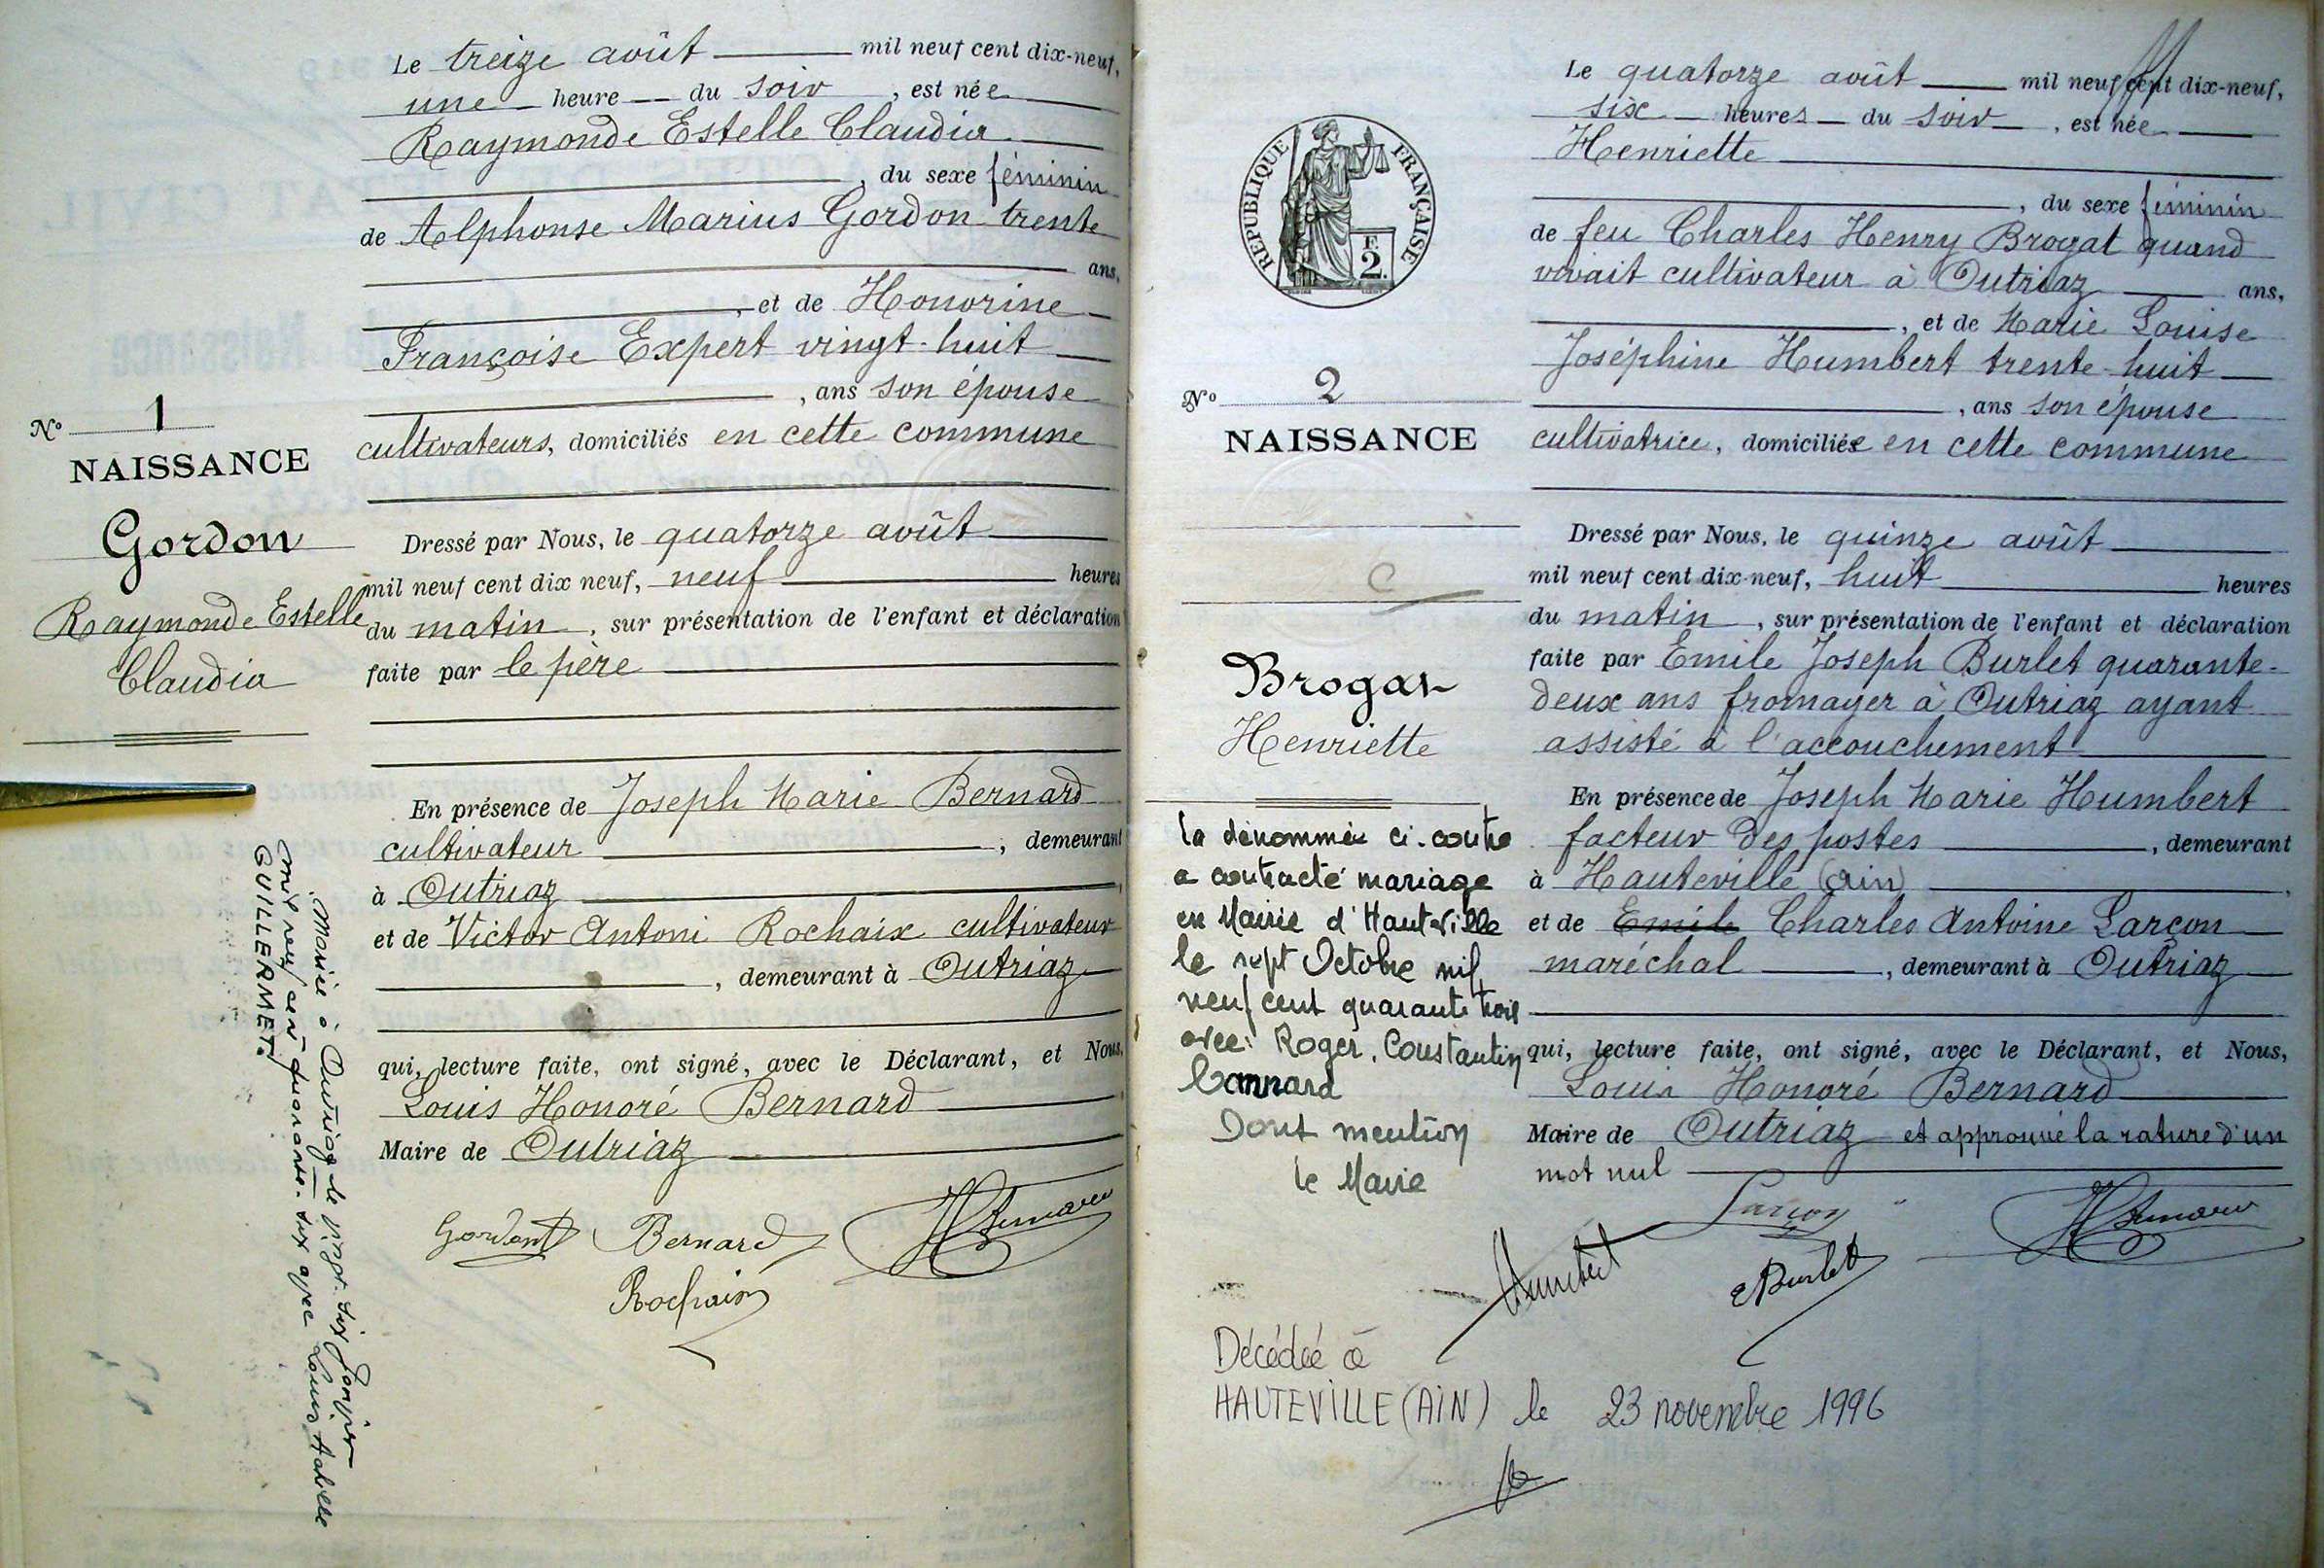 Le treize août mil neuf cent dix-neuf,
une heure du soir, est née
Raymonde Estelle Claudia
, du sexe féminin
de Alphonse Marius Gordon trente
ans,
, et de Honorine
Françoise Expert vingt-huit
, ans son épouse
cultivateurs, domiciliés en cette commune
Nº 1
NAISSANCE
Gordon
Raymonde Estelle
Claudia
Dressé par Nous, le quatorze août
mil neuf cent dix neuf, neuf heures
du matin, sur présentation de l'enfant et déclaration
faite par le père
En présence de Joseph Marie Bernard
cultivateur, demeurant
à Outriaz
et de Victor Antoni Rochaix cultivateur
, demeurant à Outriaz
qui, lecture faite, ont signé, avec le Déclarant, et Nous,
Louis Honoré Bernard
Maire de Outriaz
Mariée à Outriaz le vingt-six Janvier
mil neuf cent quarante-six avec Louis
GUILLERMET.
Gordon Bernard HBernard
Rochaix
Le quatorze août mil neuf cent dix-neuf,
six heures du soir, est née
Henriette
, du sexe féminin
de feu Charles Henry Brogat quand
vivait cultivateur à Outriaz ans,
, et de Marie Louise
Joséphine Humbert trente-huit
, ans son épouse
cultivatrice, domiciliée en cette commune
REPUBLIQUE FRANÇAISE
F.
2.
Nº 2
NAISSANCE
Brogat
Henriette
Dressé par Nous, le quinze août
mil neuf cent dix-neuf, huit heures
du matin, sur présentation de l'enfant et déclaration
faite par Emile Joseph Burlet quarante-
deux ans fromager à Outriaz ayant
assisté à l'accouchement
En présence de Joseph Marie Humbert
facteur des postes, demeurant
à Hauteville (Ain)
et de Emile Charles Antoine Larçon
maréchal, demeurant à Outriaz
qui, lecture faite, ont signé, avec le Déclarant, et Nous,
Louis Honoré Bernard
Maire de Outriaz et approuvé la rature d'un
mot nul
la dénommée ci-contre
a contracté mariage
en Mairie d'Hauteville
le sept Octobre mil
neuf cent quarante trois
avec Roger, Constantin
Cannard
Dont mention
le Maire
Larçon
Humbert EBurlet HBernard
Décédée à
HAUTEVILLE (AIN) le 23 novembre 1996